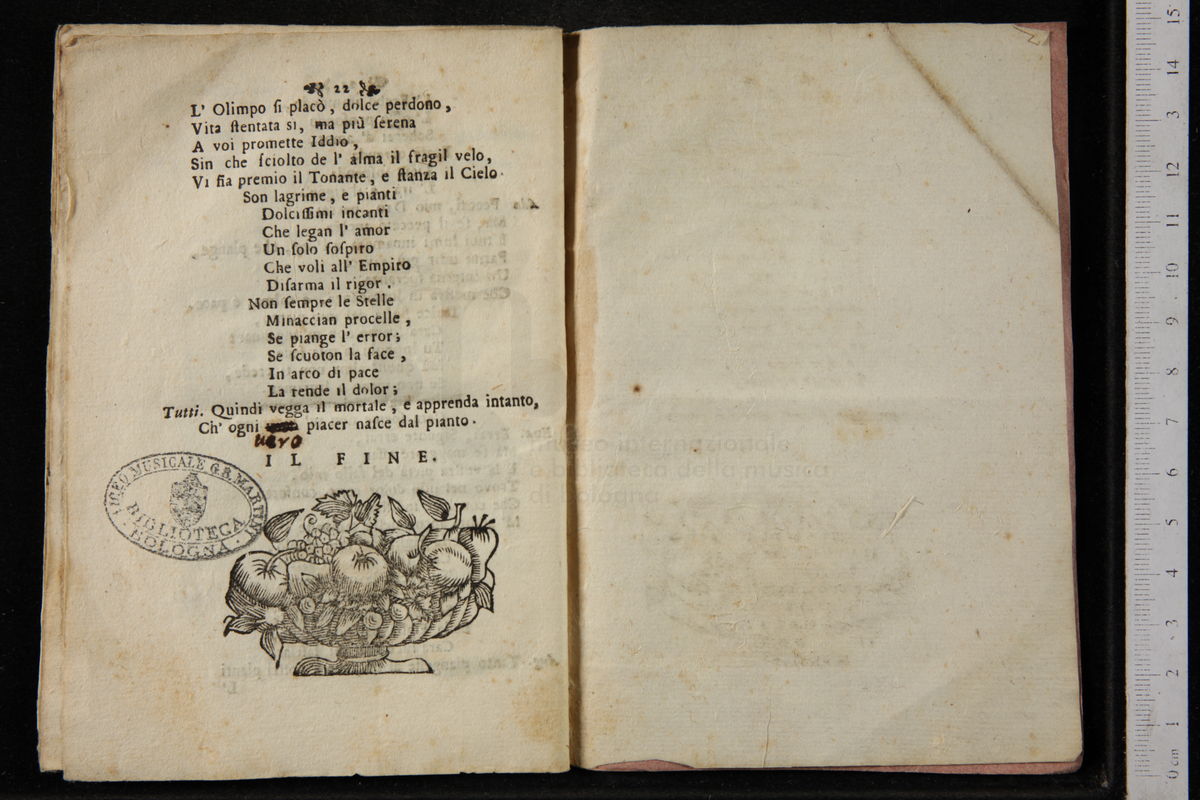 22
L' Olimpo ſi placò, dolce perdono,
Vita ſtentata si, ma più ſerena
A voi promette Iddio,
Sin che ſciolto de l' alma il fragil velo,
Vi ſia premio il Tonante, e ſtanza il Cielo.
Son lagrime, e pianti
Dolciſſimi incanti
Che legan l' amor
Un ſolo ſoſpiro
Che voli all' Empiro
Diſarma il rigor.
Non ſempre le Stelle
Minaccian procelle,
Se piange l' error;
Se ſcuoton la face,
In arco di pace
La rende il dolor;
Tutti. Quindi vegga il mortale, e apprenda intanto,
Ch' ogni piacer naſce dal pianto.
vero
IL FINE.
LICEO MUSICALE G.B. MARTINI
BIBLIOTECA
BOLOGNA
museo internazionale
e biblioteca della musica
di Bologna
0 cm 1 2 3 4 5 6 7 8 9 10 11 12 13 14 15